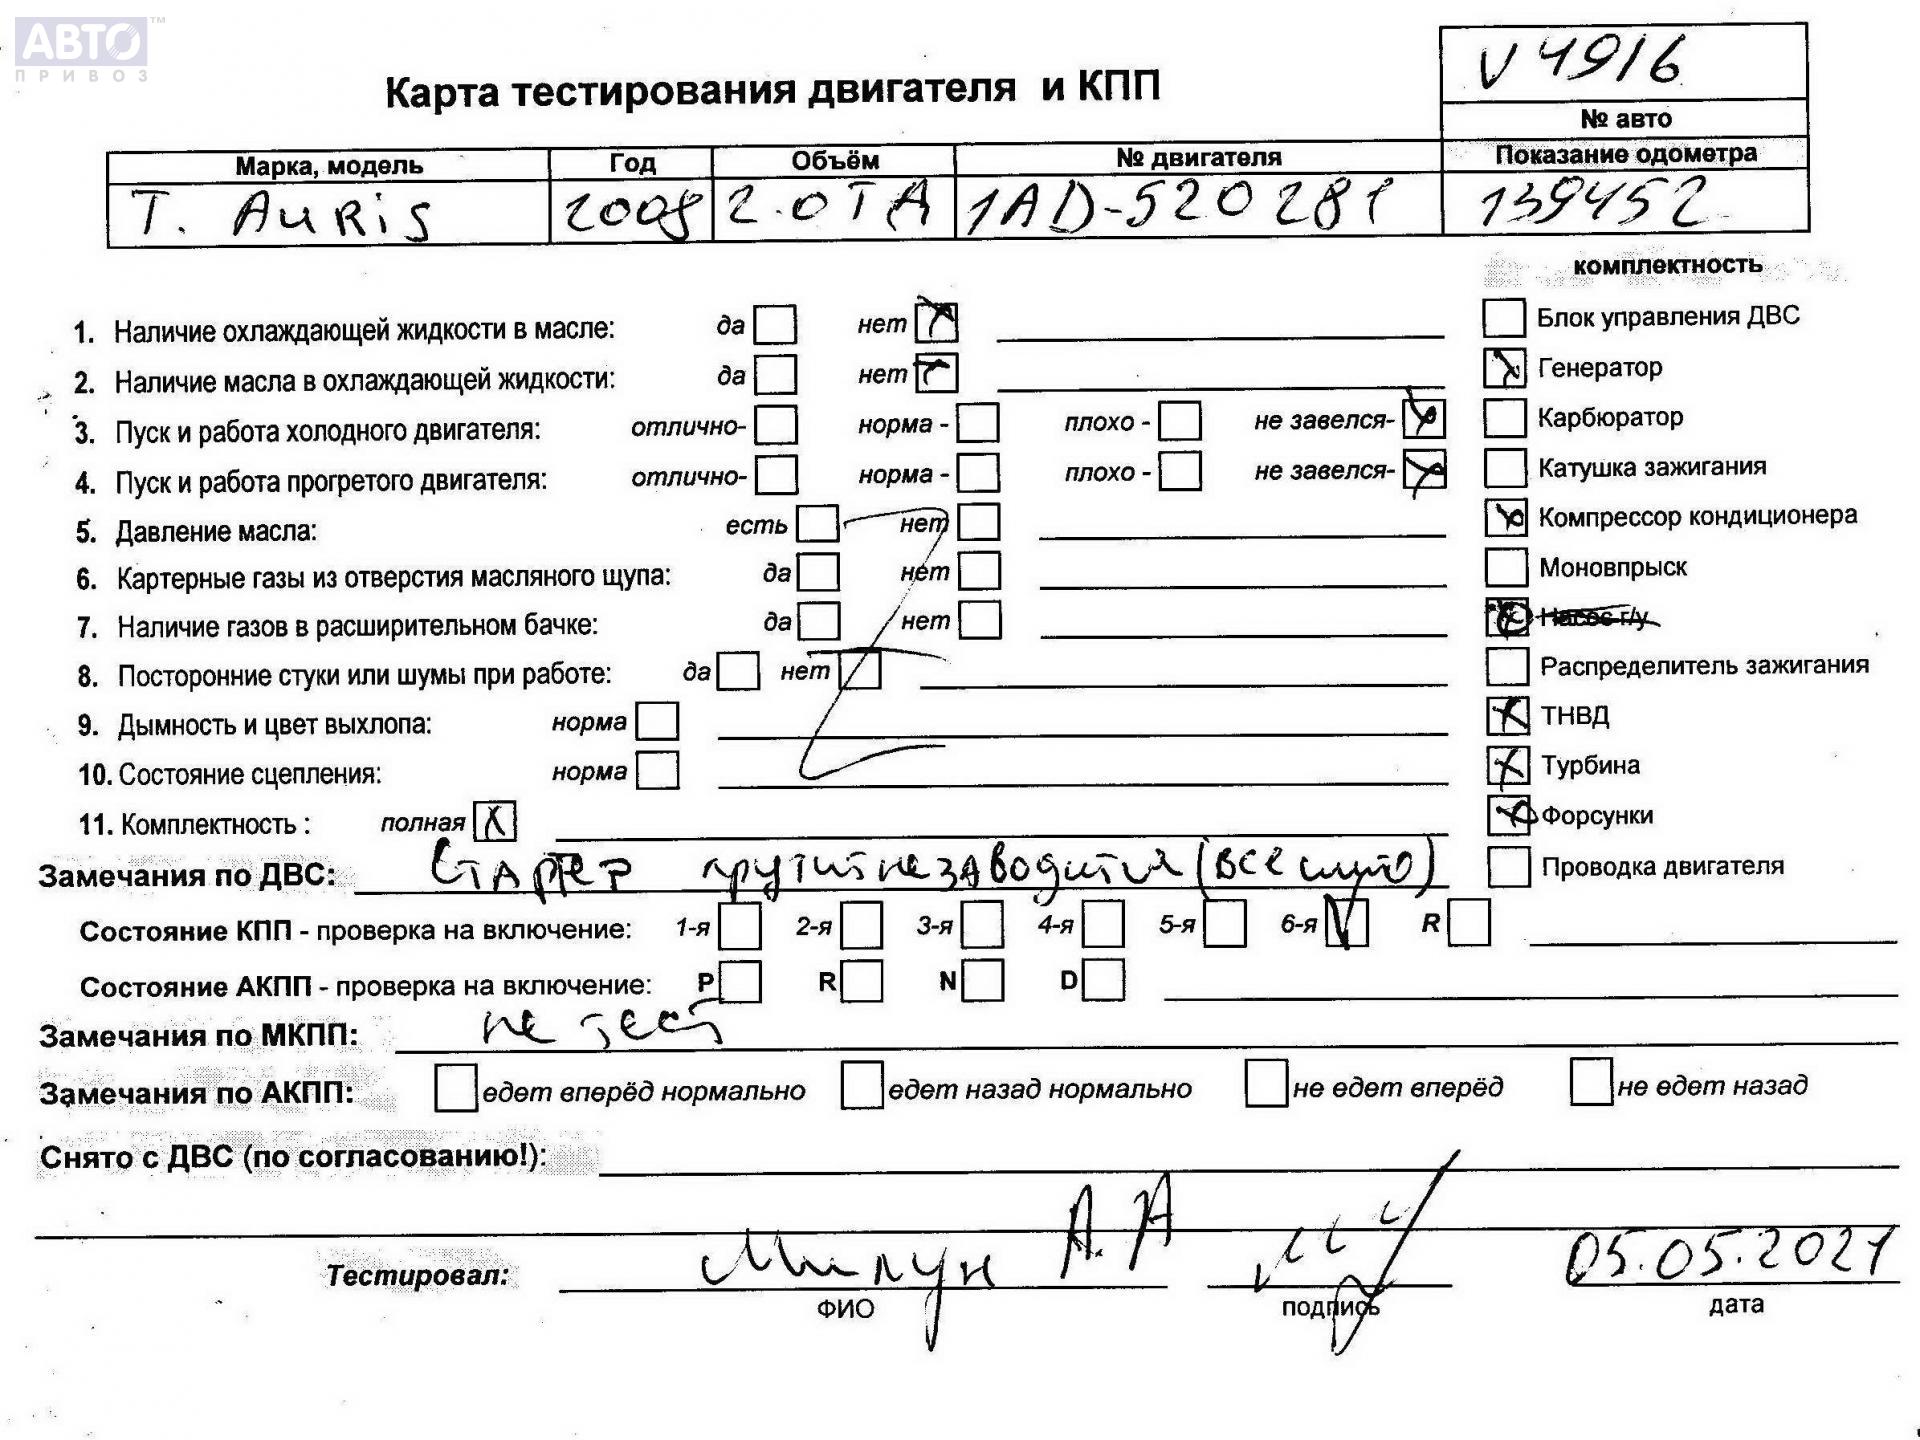 АВТО™
ПРИВОЗ
V4916
Карта тестирования двигателя и КПП
№ авто
Марка, модель Год Объём № двигателя Показание одометра
T. AURiS 2008 2.0TД 1AD-520281 139452
комплектность
1. Наличие охлаждающей жидкости в масле: да нет Блок управления ДВС
2. Наличие масла в охлаждающей жидкости: да нет Генератор
3. Пуск и работа холодного двигателя: отлично- норма - плохо - не завелся- Карбюратор
4. Пуск и работа прогретого двигателя: отлично- норма - плохо - не завелся- Катушка зажигания
5. Давление масла: есть нет Компрессор кондиционера
6. Картерные газы из отверстия масляного щупа: да нет Моновпрыск
7. Наличие газов в расширительном бачке: да нет Насос г/у
8. Посторонние стуки или шумы при работе: да нет Распределитель зажигания
9. Дымность и цвет выхлопа: норма ТНВД
10. Состояние сцепления: норма Турбина
11. Комплектность : полная Форсунки
Замечания по ДВС: СТАРТЕР крутит не заводится (все) Проводка двигателя
Состояние КПП - проверка на включение: 1-я 2-я 3-я 4-я 5-я 6-я R
Состояние АКПП - проверка на включение: P R N D
Замечания по МКПП: не тест
Замечания по АКПП: едет вперёд нормально едет назад нормально не едет вперёд не едет назад
Снято с ДВС (по согласованию!):
Тестировал: Милун А.А 05.05.2021
ФИО подпись дата